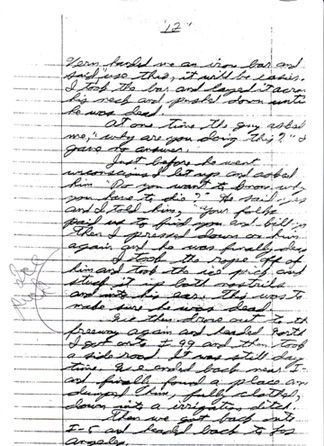 "12"
Vern handed me an iron bar and
said "use this, it will be easier.
I took the bar and layed it across
his neck and pushed down until
he was dead.
At one time the guy asked
me, "why are you doing this?" I
gave no answer.
Just before he went
unconscious I let up and asked
him "Do you want to know why
you have to die?" He said yes
and I told him, "Your folks
paid us to find you and kill you
then I pressed down on him
again and he was finally dead
I took the rope off of
him and took the ice pick and
stuck it up both nostrils
and into his ear. This was to
make sure he was dead.
We then drove out to the
freeway again and headed North
I got onto I 99 and then took
a side road It was still day
time. We ended back near I-
and finally found a place and
dumped him, fully clothed,
down into a irrigation ditch.
Then we got back onto
I-5 and headed back to Los
Angeles.